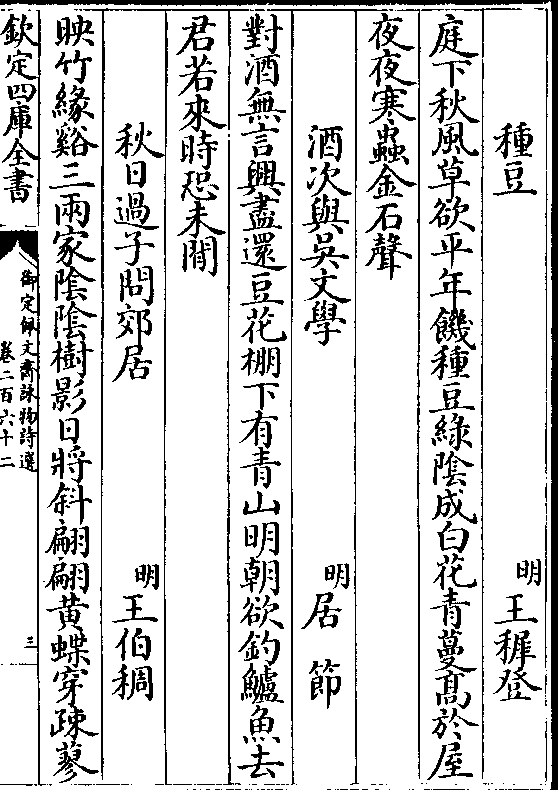 種豆　明王穉登
庭下秋風草欲平年饑種豆綠陰成白花青蔓髙於屋
夜夜寒蟲金石聲
酒次與吳文學　明居節
對酒無言興盡還豆花棚下有青山明朝欲釣鱸魚去
君若來時恐未閒
秋日過子問郊居　明王伯稠
映竹緣谿三兩家陰陰樹影日將斜翩翩黄蝶穿疎蓼
欽定四庫全書
御定佩文齋詠物詩選
卷二百六十二
三